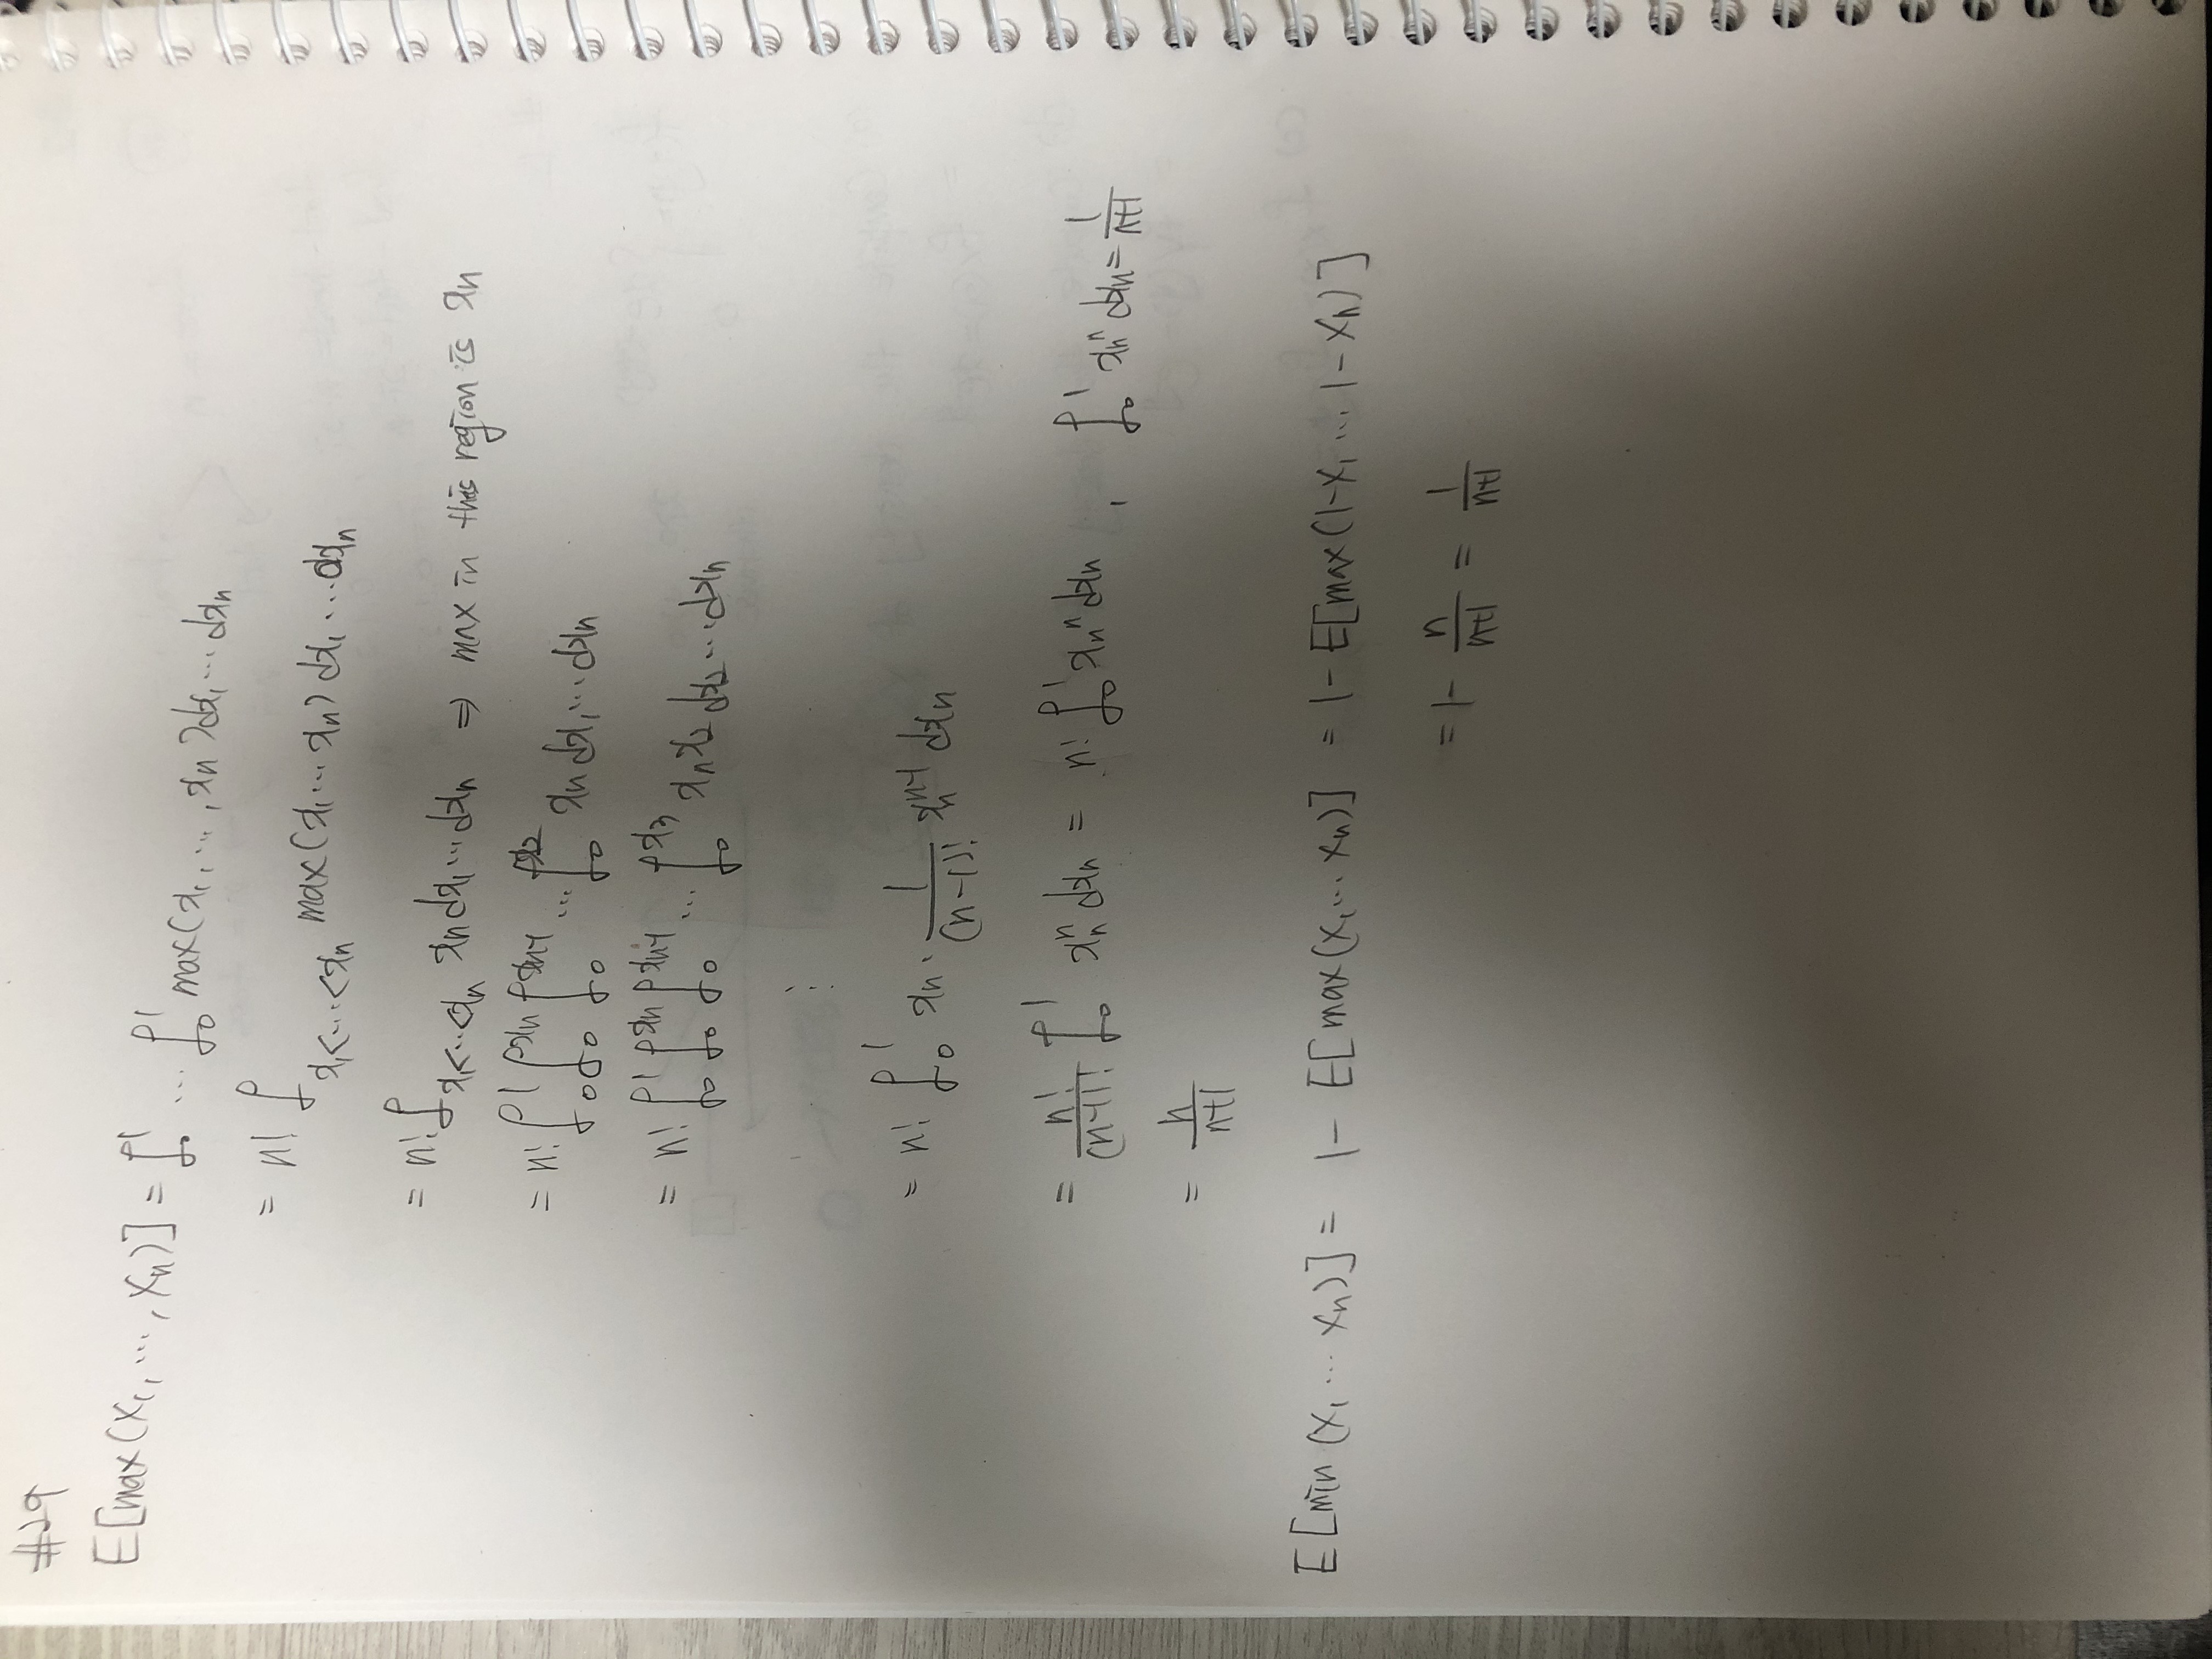 #29
E[max(X₁, ..., Xₙ)] = ∫₀¹ ... ∫₀¹ max(x₁, ..., xₙ) dx₁ ... dxₙ
= n! ∫_{x₁<...<xₙ} max(x₁ ... xₙ) dx₁ ... dxₙ
= n! ∫_{x₁<...<xₙ} xₙ dx₁ ... dxₙ ⇒ max in this region is xₙ
= n! ∫₀¹ ∫₀^{xₙ} ∫₀^{xₙ₋₁} ... ∫₀^{x₂} xₙ dx₁ ... dxₙ
= n! ∫₀¹ ∫₀^{xₙ} ∫₀^{xₙ₋₁} ... ∫₀^{x₃} xₙ x₂ dx₂ ... dxₙ
⋮
= n! ∫₀¹ xₙ · 1/(n-1)! xₙ^{n-1} dxₙ
= n!/(n-1)! ∫₀¹ xₙⁿ dxₙ = n! ∫₀¹ xₙⁿ dxₙ , ∫₀¹ xₙⁿ dxₙ = 1/(n+1)
= n/(n+1)
E[min(X₁ ... Xₙ)] = 1 - E[max(X₁ ... Xₙ)] = 1 - E[max(1-X₁ ... 1-Xₙ)]
= 1 - n/(n+1) = 1/(n+1)